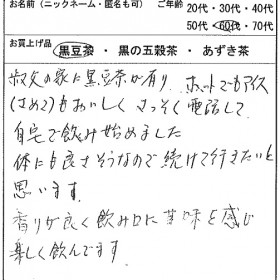 お名前(ニックネーム・匿名も可) ご年齢 20代・30代・40代
50代・60代・70代
お買上げ品 黒豆茶 ・ 黒の五穀茶 ・ あずき茶
叔父の家に黒豆茶が有り ホットでもアイス
(さめても)もおいしく さっそく電話して
自宅で飲み始めました
体にも良さそうなので続けて行きたいと
思います。
香りが良く飲み口に甘味を感じ
楽しく飲んでます。